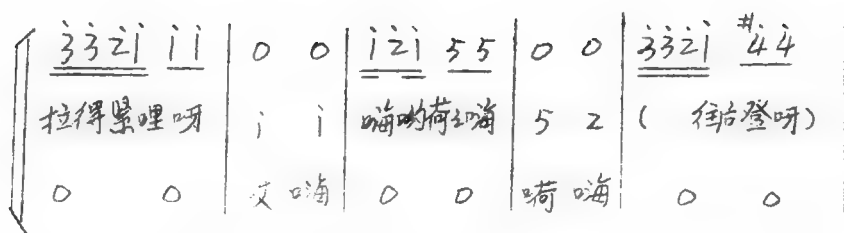 3̇3̇2̇1̇ 1̇1̇ | 0 0 | 1̇2̇1̇ 55 | 0 0 | 3̇3̇2̇1̇ #4̇4̇
拉得紧哩呀 | 1̇ 1̇ | 嗨哟荷之嗨 | 5 2 | ( 往后登呀)
0 0 | 艾 嗨 | 0 0 | 嗬 嗨 | 0 0